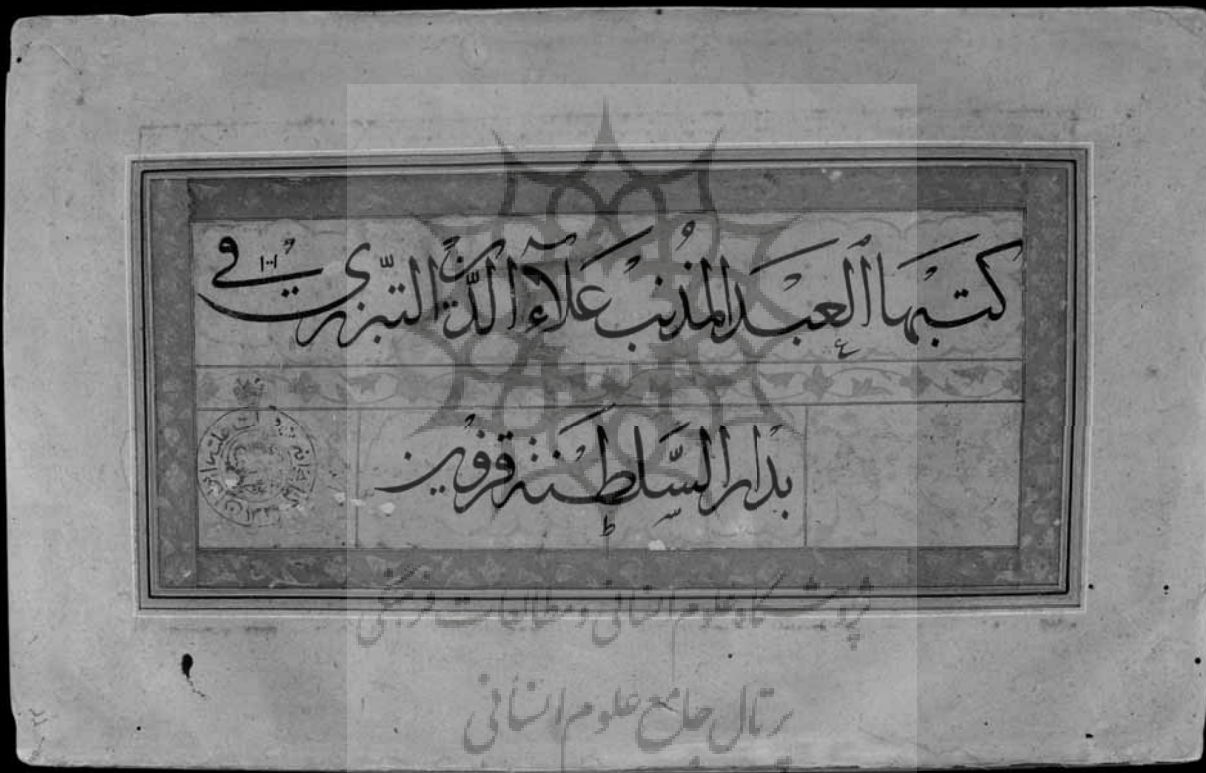 كتبها العبد المذنب علاء الدين التبريزي في سنة ١٠٠١
بدار السلطنة قزوين
پژوهشگاه علوم انسانی و مطالعات فرهنگی
پرتال جامع علوم انسانی